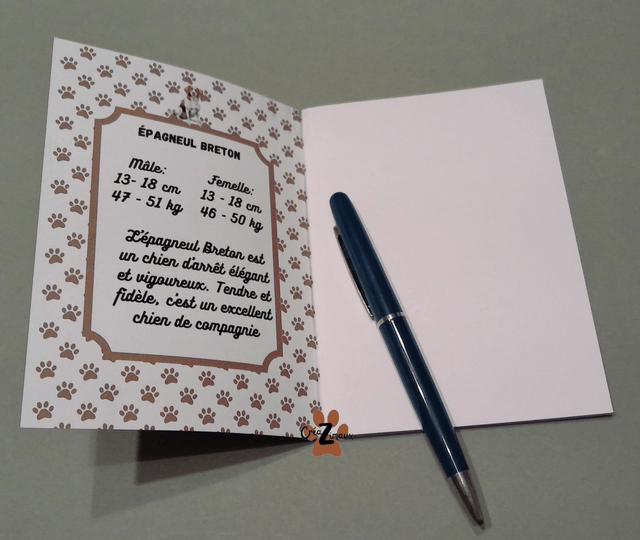 ÉPAGNEUL BRETON
Mâle:
13- 18 cm
47 - 51 kg
Femelle:
13 - 18 cm
46 - 50 kg
L'épagneul Breton est
un chien d'arrêt élégant
et vigoureux. Tendre et
fidèle, c'est un excellent
chien de compagnie
CréaZ'imaux